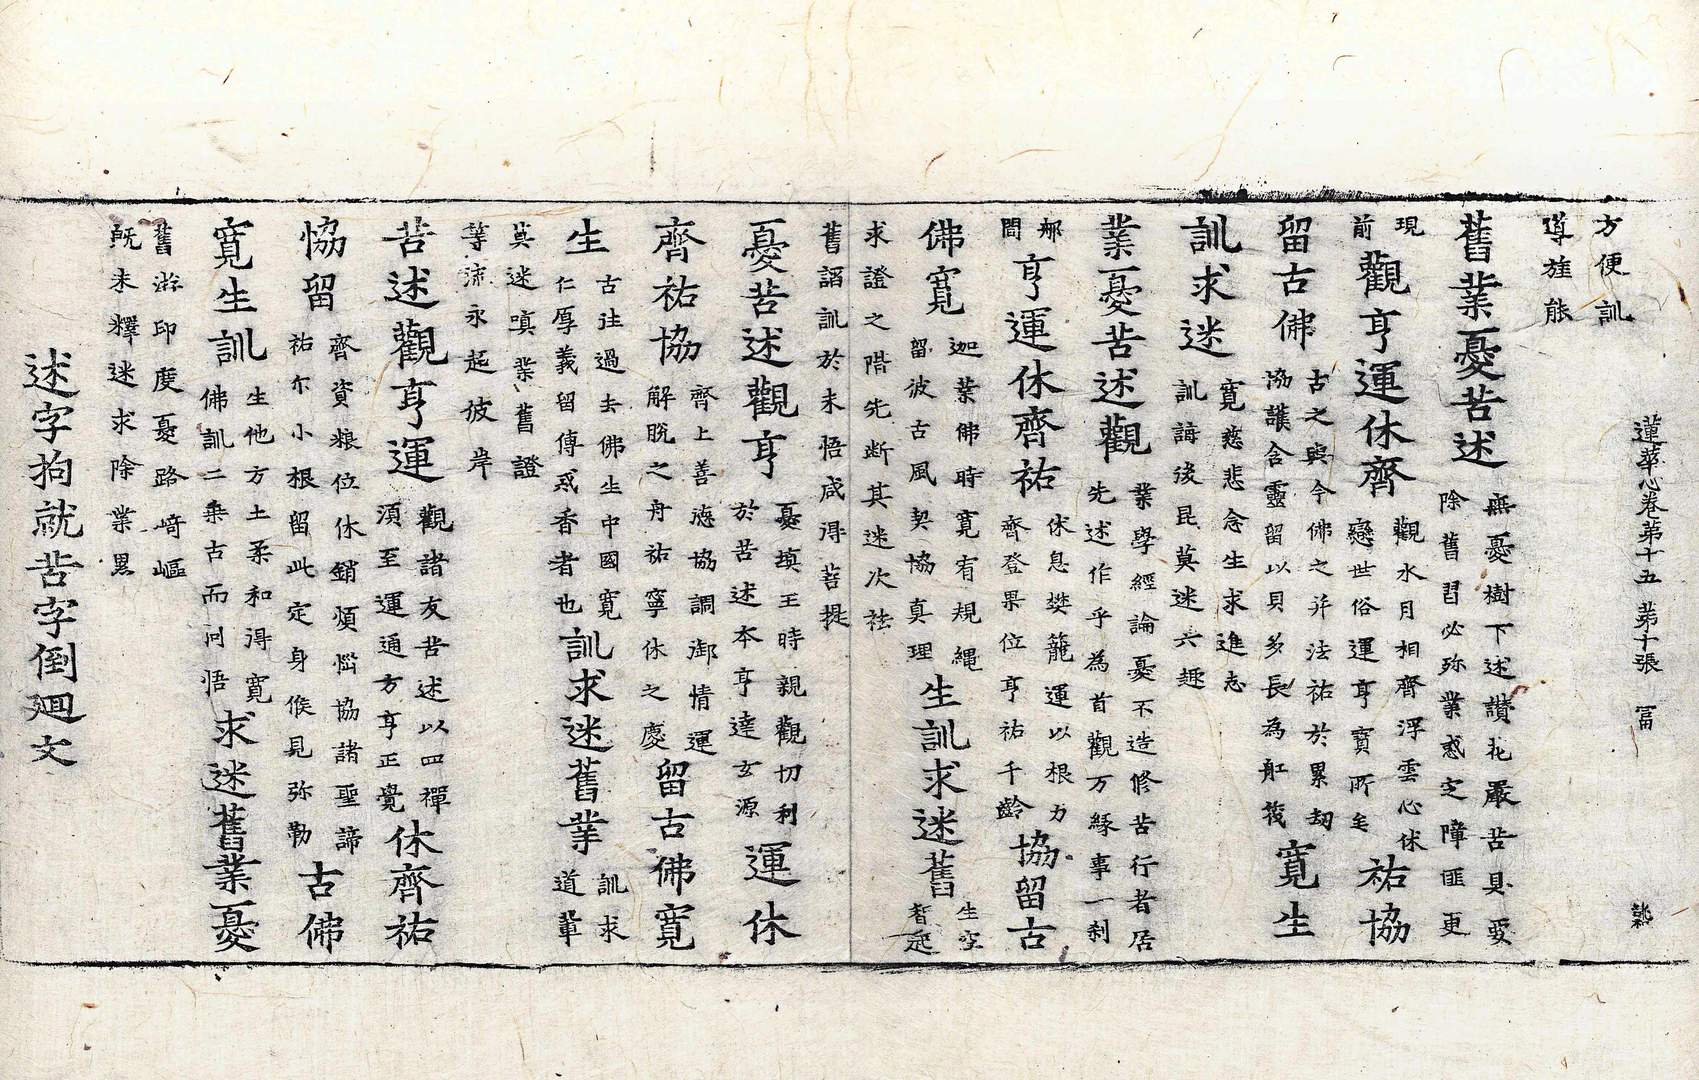 蓮華心卷第十五 第十張 冨
方便訓
導旌能
舊業憂苦述
無憂樹下述讚花嚴苦具要
除舊習必弥業惑之障匪更
現
前
觀亨運休齊
觀水月相齊浮雲心休
戀世俗運亨寶所至
祐協
留古佛
古之與今佛之并法祐於累劫
協護含靈留以貝多長為舡筏
寬生
訓求迷
寬慈悲念生求進志
訓誨後昆莫迷六趣
業憂苦述觀
業學經論憂不造修苦行者居
先述作乎為首觀万緣事一刹
那
間
亨運休齊祐
休息樊籠運以根力
齊登果位亨祐千齡
協留古
佛寬
迦葉佛時寬有規繩
留彼古風契協真理
生訓求迷舊
生空
智起
求證之階先断其迷次祛
舊謟訓於未悟咸得菩提
憂苦述觀亨
憂填王時親觀切利
於苦述本亨達玄源
運休
齊祐協
齊上善德協調御情運
解脫之舟祐寧休之慶
留古佛寬
生
古往過去佛生中國寬
仁厚義留傅惑香者也
訓求迷舊業
訓求
道輩
莫迷嗔業舊證
等流永起彼岸
苦述觀亨運
觀諸友苦述以四禪
須至運通方亨正覺
休齊祐
協留
齊資粮位休銷煩惱協諸聖諦
祐尒小根留此定身候見弥勒
古佛
寬生訓
生他方土柔和得寬
佛訓二乘古而同悟
求迷舊業憂
舊游印度憂路崎嶇
既未釋迷求除業累
述字拘就苦字倒廻文